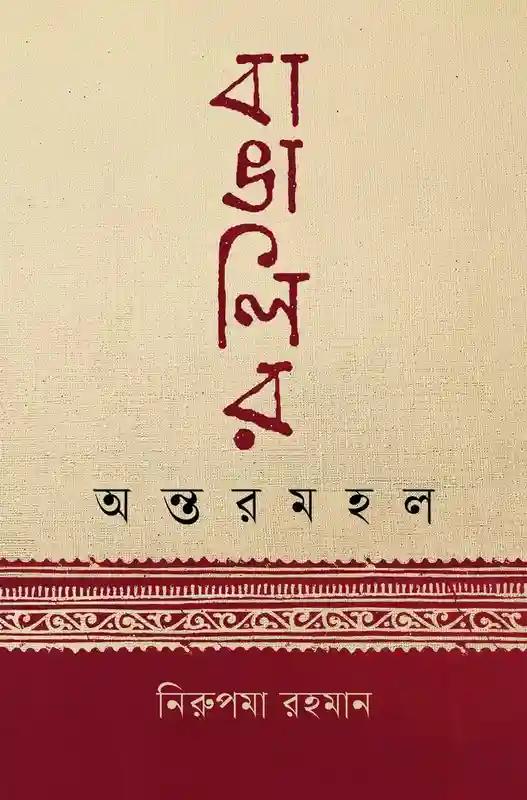 বাঙালির
অন্তরমহল
নিরুপমা রহমান